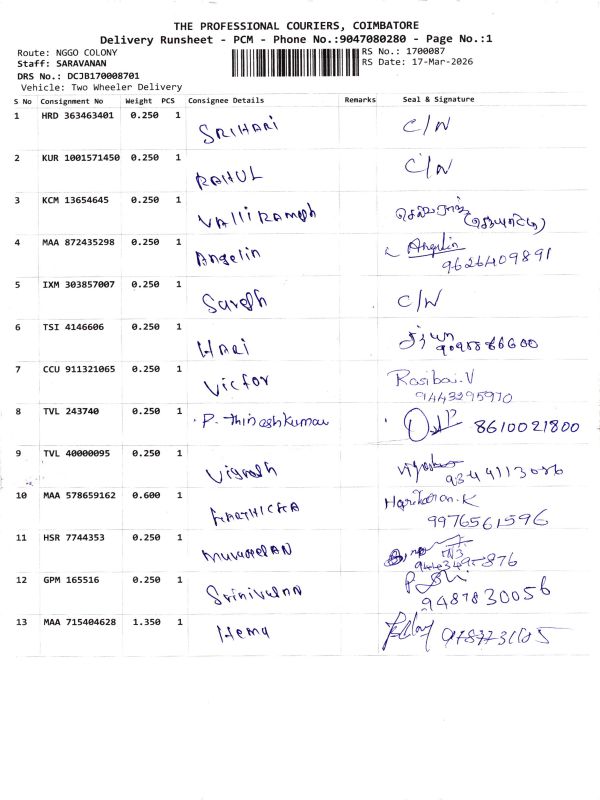 THE PROFESSIONAL COURIERS, COIMBATORE
Delivery Runsheet - PCM - Phone No.:9047080280 - Page No.:1
Route: NGGO COLONY
RS No.: 1700087
Staff: SARAVANAN
RS Date: 17-Mar-2026
DRS No.: DCJB170008701
Vehicle: Two Wheeler Delivery
S No Consignment No Weight PCS Consignee Details Remarks Seal & Signature
1 HRD 363463401 0.250 1 SRIHARI C/N
2 KUR 1001571450 0.250 1 RAHUL C/N
3 KCM 13654645 0.250 1 VAlli RAmesh
4 MAA 872435298 0.250 1 Angelin Angelin
9626409891
5 IXM 303857007 0.250 1 Suresh C/N
6 TSI 4146606 0.250 1 HARi
7 CCU 911321065 0.250 1 Victor Rosibai.V
9443295970
8 TVL 243740 0.250 1 P. Thineshkumar 8610021800
9 TVL 40000095 0.250 1 Vignesh
9344113086
10 MAA 578659162 0.600 1 KARTHICKA Hariharan.K
9976561596
11 HSR 7744353 0.250 1 MURUGESAN
12 GPM 165516 0.250 1 Srinivasan
9487830056
13 MAA 715404628 1.350 1 Hema